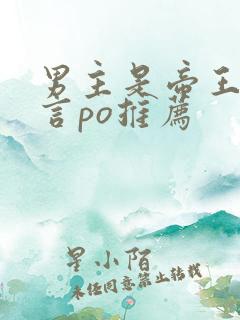 男主是帝王
言po推薦
星小陌
未经同意禁止转载